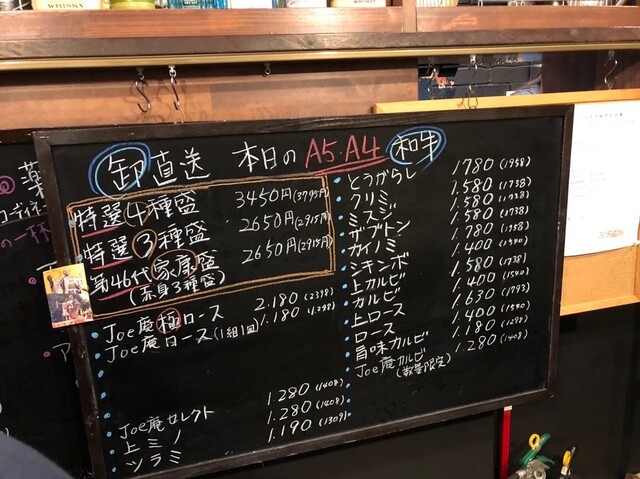 卸直送 本日の A5.A4 和牛
特選④種盛 3450円(3795円)
特選③種盛 2650円(2915円)
第46代家康盛 2650円(2915円)
(赤身3種盛)
Joe庵極ロース 2.180(2398)
Joe庵ロース(1組1回) 1.180(1298)
Joe庵セレクト 1.280(1408)
上ミノ 1.280(1408)
ツラミ 1.190(1309)
とうがらし 1780(1958)
クリミ 1.580(1738)
ミスジ 1.580(1738)
ザブトン 1.580(1738)
カイノミ 1.780(1958)
シキンボ 1.400(1540)
上カルビ 1.580(1738)
カルビ 1.400(1540)
上ロース 1.630(1793)
ロース 1.400(1540)
旨味カルビ 1.180(1298)
Joe庵カルビ 1.280(1408)
(数量限定)
WHISKY